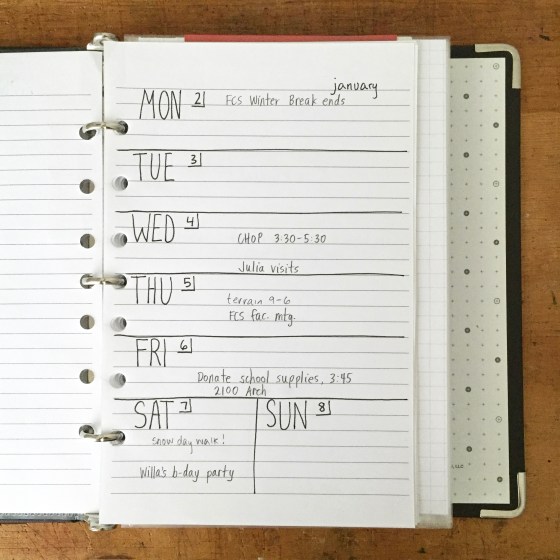 january
MON 2 FCS Winter Break ends
TUE 3
WED 4
CHOP 3:30-5:30
Julia visits
THU 5
terrain 9-6
FCS fac. mtg.
FRI 6
Donate school supplies, 3:45
2100 Arch
SAT 7
snow day walk!
Willa's b-day party
SUN 8
LLC